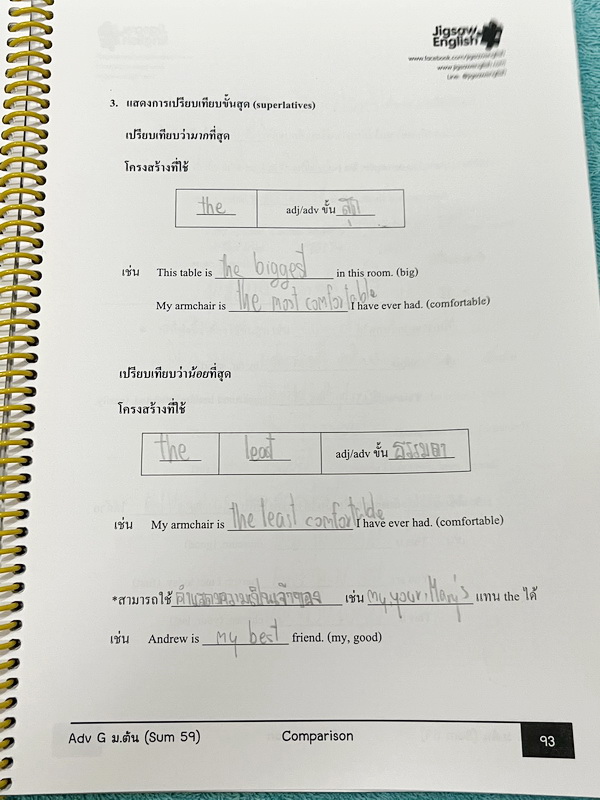 Jigsaw
English
www.facebook.com/jigsawenglish
www.jigsawenglish.com
Line: @jigsawenglish
3. แสดงการเปรียบเทียบขั้นสุด (superlatives)
เปรียบเทียบว่ามากที่สุด
โครงสร้างที่ใช้
the adj/adv ขั้น สุด
เช่น This table is the biggest in this room. (big)
My armchair is the most comfortable I have ever had. (comfortable)
เปรียบเทียบว่าน้อยที่สุด
โครงสร้างที่ใช้
the least adj/adv ขั้น ธรรมดา
เช่น My armchair is the least comfortable I have ever had. (comfortable)
*สามารถใช้ คำแสดงความเป็นเจ้าของ เช่น my, your, Mary's แทน the ได้
เช่น Andrew is my best friend. (my, good)
Adv G ม.ต้น (Sum 59) Comparison 93